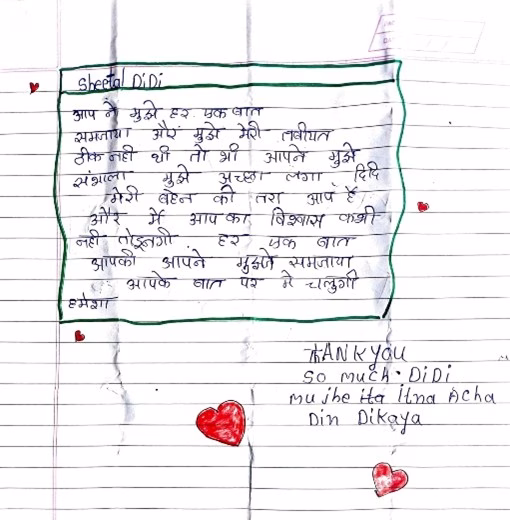 Sheetal DiDi
आप ने मुझे हर एक बात
समजाया और मुझे मेरी तबीयत
ठीक नही थी तो भी आपने मुझे
संभाला मुझे अच्छा लगा दिदि
मेरी बहेन की तरा आप है
और में आप का विश्वास कभी
नही तोडूनगी हर एक बात
आपकी आपने मुझे समजाया
आपके बात पर मे चलुगी
हमेशा
THANK YOU
So much DiDi
mujhe itna Acha
Din Dikaya